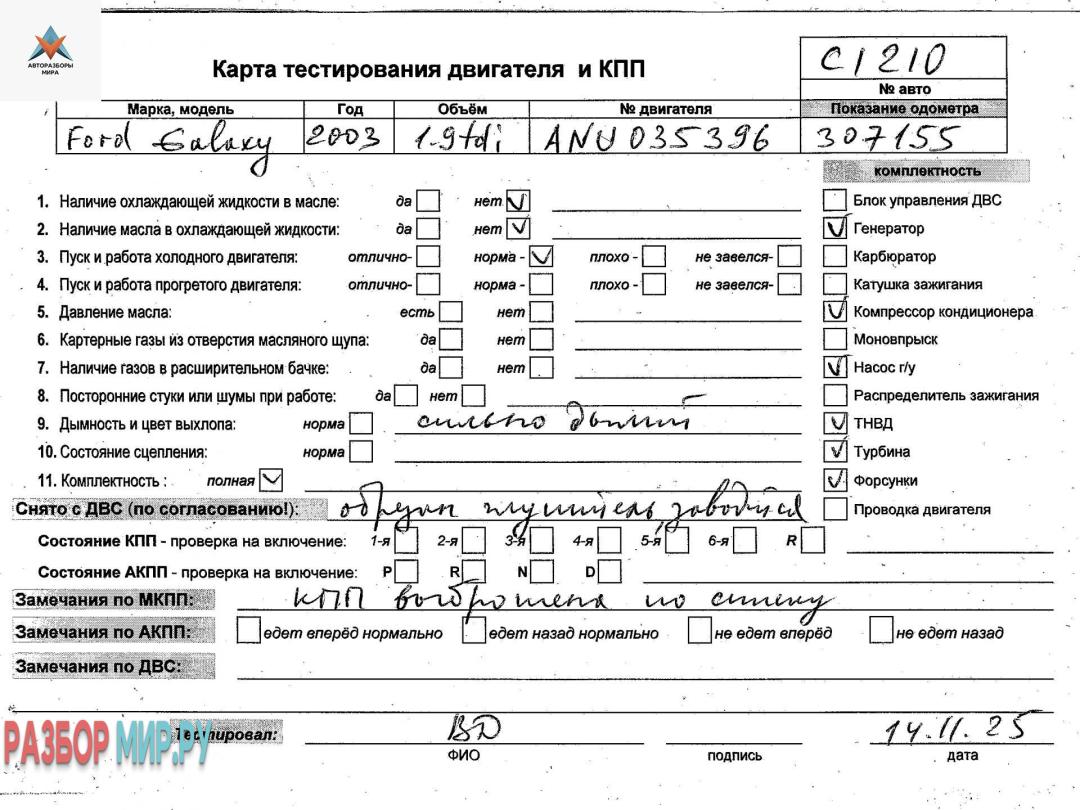 АВТОРАЗБОРЫ
МИРА
Карта тестирования двигателя и КПП
C1210
№ авто
Марка, модель Год Объём № двигателя Показание одометра
Ford Galaxy 2003 1.9tdi ANU 035396 307155
комплектность
1. Наличие охлаждающей жидкости в масле: да нет Блок управления ДВС
2. Наличие масла в охлаждающей жидкости: да нет Генератор
3. Пуск и работа холодного двигателя: отлично- норма - плохо - не завелся- Карбюратор
4. Пуск и работа прогретого двигателя: отлично- норма - плохо - не завелся- Катушка зажигания
5. Давление масла: есть нет Компрессор кондиционера
6. Картерные газы из отверстия масляного щупа: да нет Моновпрыск
7. Наличие газов в расширительном бачке: да нет Насос г/у
8. Посторонние стуки или шумы при работе: да нет Распределитель зажигания
9. Дымность и цвет выхлопа: норма сильно дымит ТНВД
10. Состояние сцепления: норма Турбина
11. Комплектность : полная Форсунки
Снято с ДВС (по согласованию!): обрезан глушитель заводится Проводка двигателя
Состояние КПП - проверка на включение: 1-я 2-я 3-я 4-я 5-я 6-я R
Состояние АКПП - проверка на включение: P R N D
Замечания по МКПП: КПП выброшена по стуку
Замечания по АКПП: едет вперёд нормально едет назад нормально не едет вперёд не едет назад
Замечания по ДВС:
Тестировал: ВД 14.11.25
ФИО подпись дата
РАЗБОРМИР.РУ